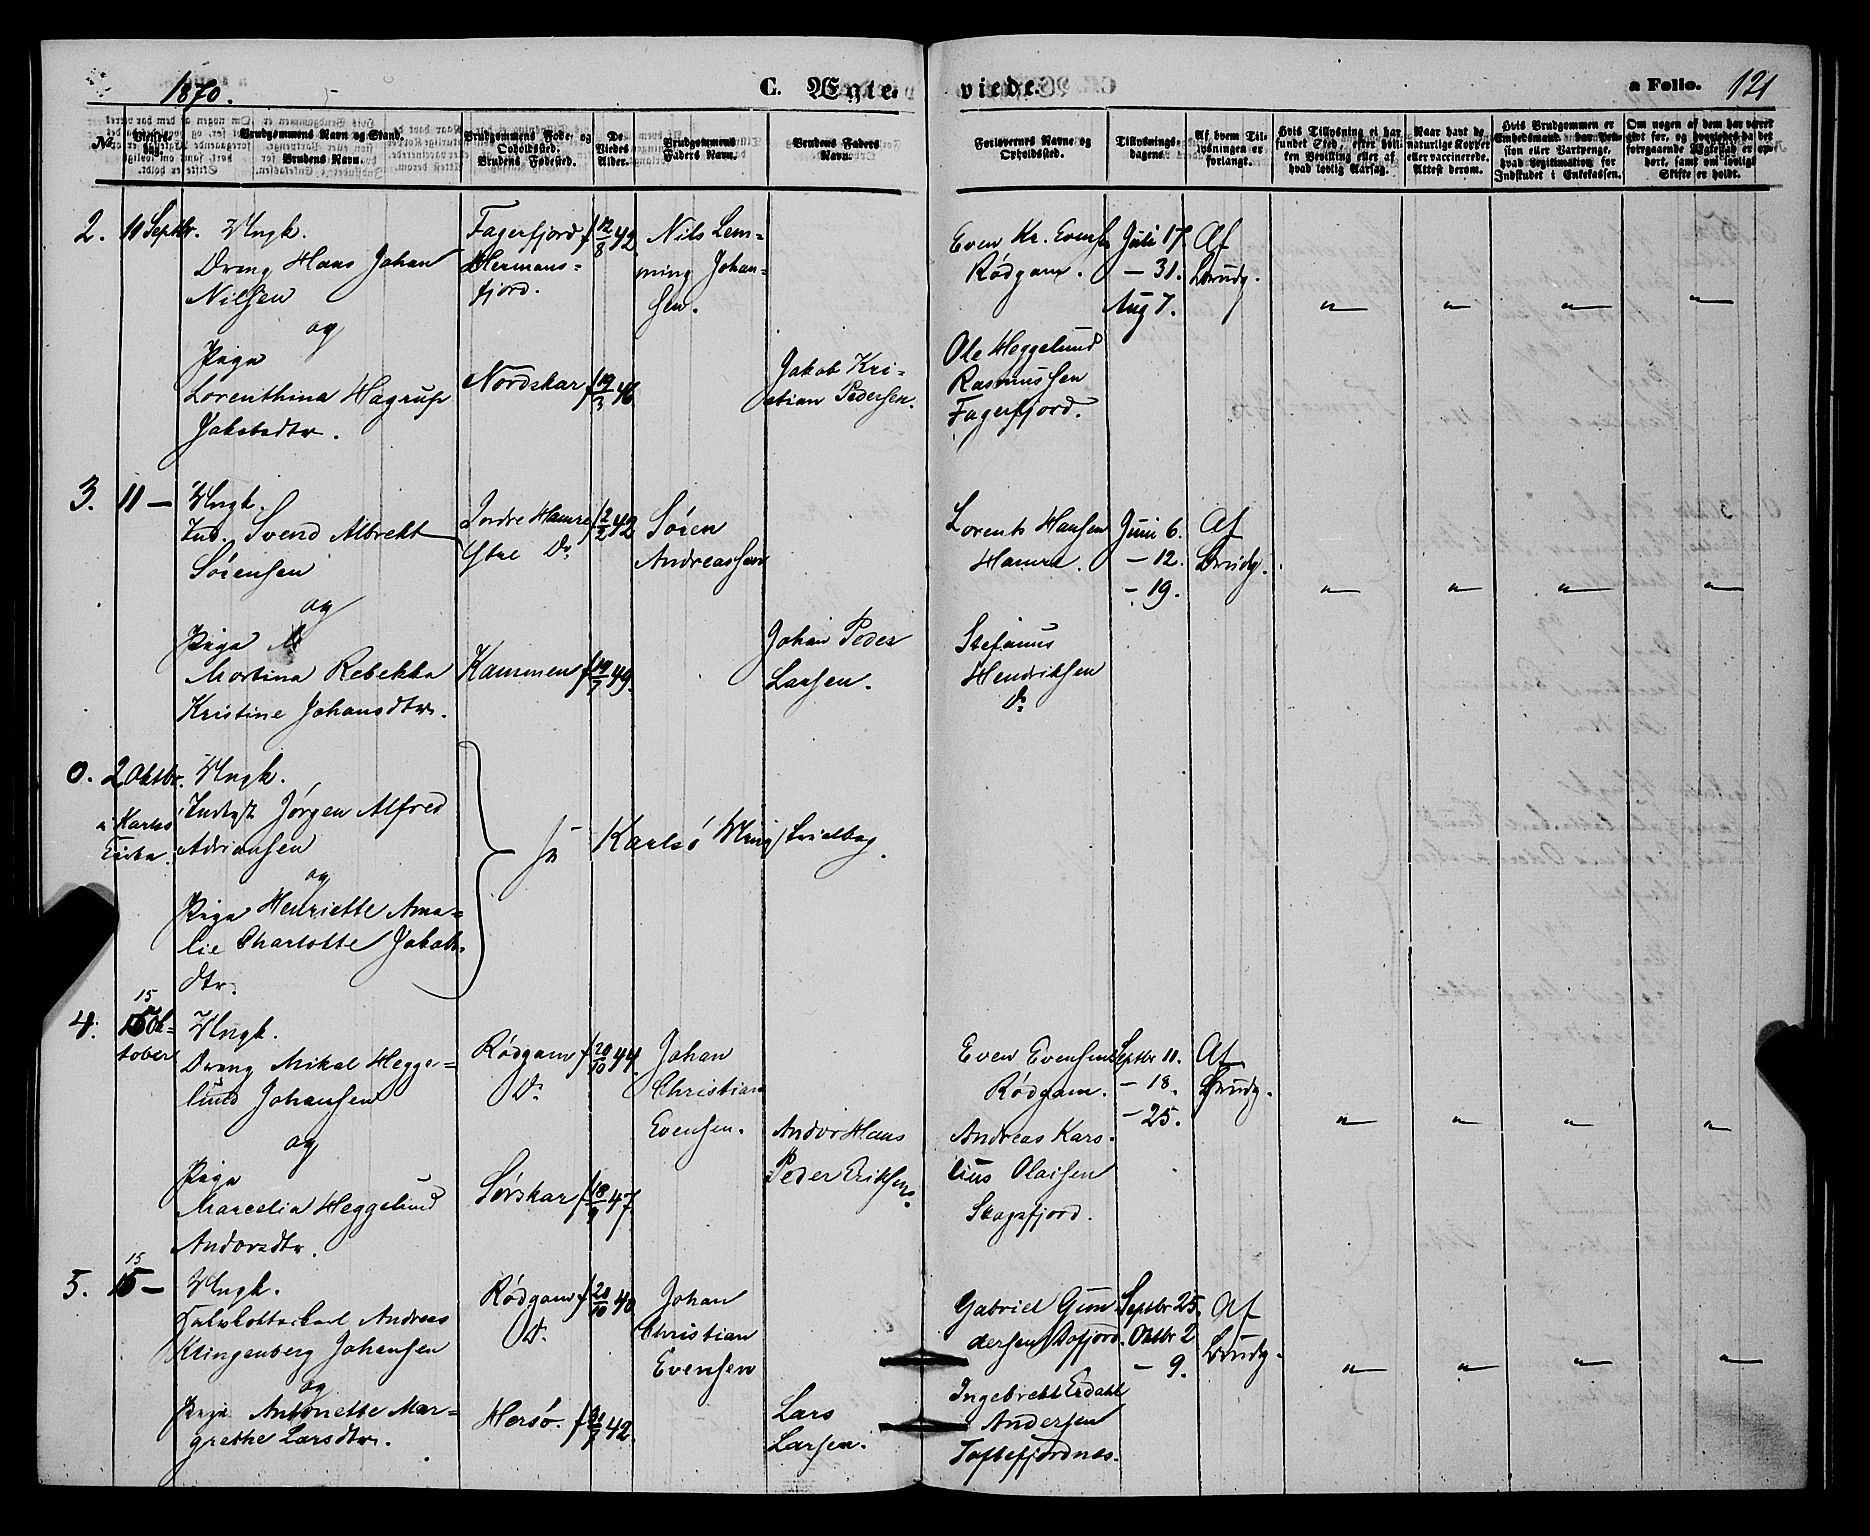 1870.
C. Ægte-
viede.
a Folio. 121
No.
Vielses-
dag.
Brudgommens Navn og Stand.
Brudens Navn.
Brudgommens Føde- og
Opholdssted.
Brudens Fødested.
De
Viedes
Alder.
Brudgommens
Faders Navn.
Brudens Faders
Navn.
Forlovernes Navne og
Opholdssted.
Tillysnings-
dagene.
Af hvem Til-
lysningen er
forlangt.
Hvis Tillysning ei har
fundet Sted, efter hvil-
ken Bevilling eller af
hvad lovlig Aarsag.
Naar havt de
naturlige Kopper
eller vaccinerede.
Attest derom.
Hvis Brudgommen er
Embedsmand, har Pen-
sion eller Vartpenge,
hvad Legitimation for
Indskudet i Enkekassen.
Om nogen af dem har været
gift før, og hvorledes da det
foregaaende Ægteskab er op-
hørt, samt om lovligt
Skifte er holdt.
2. 10 Septbr. Ungk.
Dreng Hans Johan
Nilsen
og
Pige
Lorenthina Hagrup
Jakobsdtr.
Fagerfjord
Hermans-
fjord.
Nordskar
f 12/8 42.
f 19/3 46
Nils Lem-
ming Johan-
sen.
Jakob Kri-
stian Pedersen.
Even Kr. Evensen
Rødgam.
Ole Heggelund
Rasmussen
Fagerfjord.
Juli 17
- 31.
Aug 7.
Af
Brudg.
" " " "
3. 11 — Ungk.
Ind. Svend Albrekt
Sørensen
og
Pige
Martina Rebekka
Kristine Johansdtr.
Indre Hamre
Ytre Do.
Kammen
f 2/2 42
f 19/7 49.
Søren
Andreassen
Johan Peder
Larsen.
Lorents Hansen
Hamre.
Stefanus
Hendriksen
Do.
Juni 6.
- 12.
- 19.
Af
Brudg.
" " " "
0. 2 Oktbr. Ungk.
i Karlsø
Kirke.
Indsgt Jørgen Alfred
Adriansen
og
Pige Henriette Ama-
lie Charlotte Jakobs-
dtr.
Karlsø
4. 15 Ok-
tober
15
Ungk.
Dreng Mikal Hegge-
lund Johansen
og
Pige
Marcelia Heggelund
Andorsdtr.
Rødgam
Do.
Sørskar
f 20/10 44.
f 18/9 47
Johan
Christian
Evensen.
Andor Hans
Peder Eriksen.
Even Evensen
Rødgam.
Andreas Kars-
lius Olaisen
Skogsfjord.
Septbr 11.
- 18.
- 25.
Af
Brudg.
" " " "
5. 15 —
15
Ungk.
Andreas
Klingenberg Johansen
og
Pige Antonette Mar-
grethe Larsdtr.
Rødgam
Do.
Hersø.
f 20/10 40
42.
Johan
Christian
Evensen
Lars
Larsen.
Gabriel Gun-
dersen Dafjord.
Ingebrekt Erdahl
Andersen
Toftefjordnes.
Septbr 25.
Oktbr 2
- 9.
Af
Brudg.
" " " "